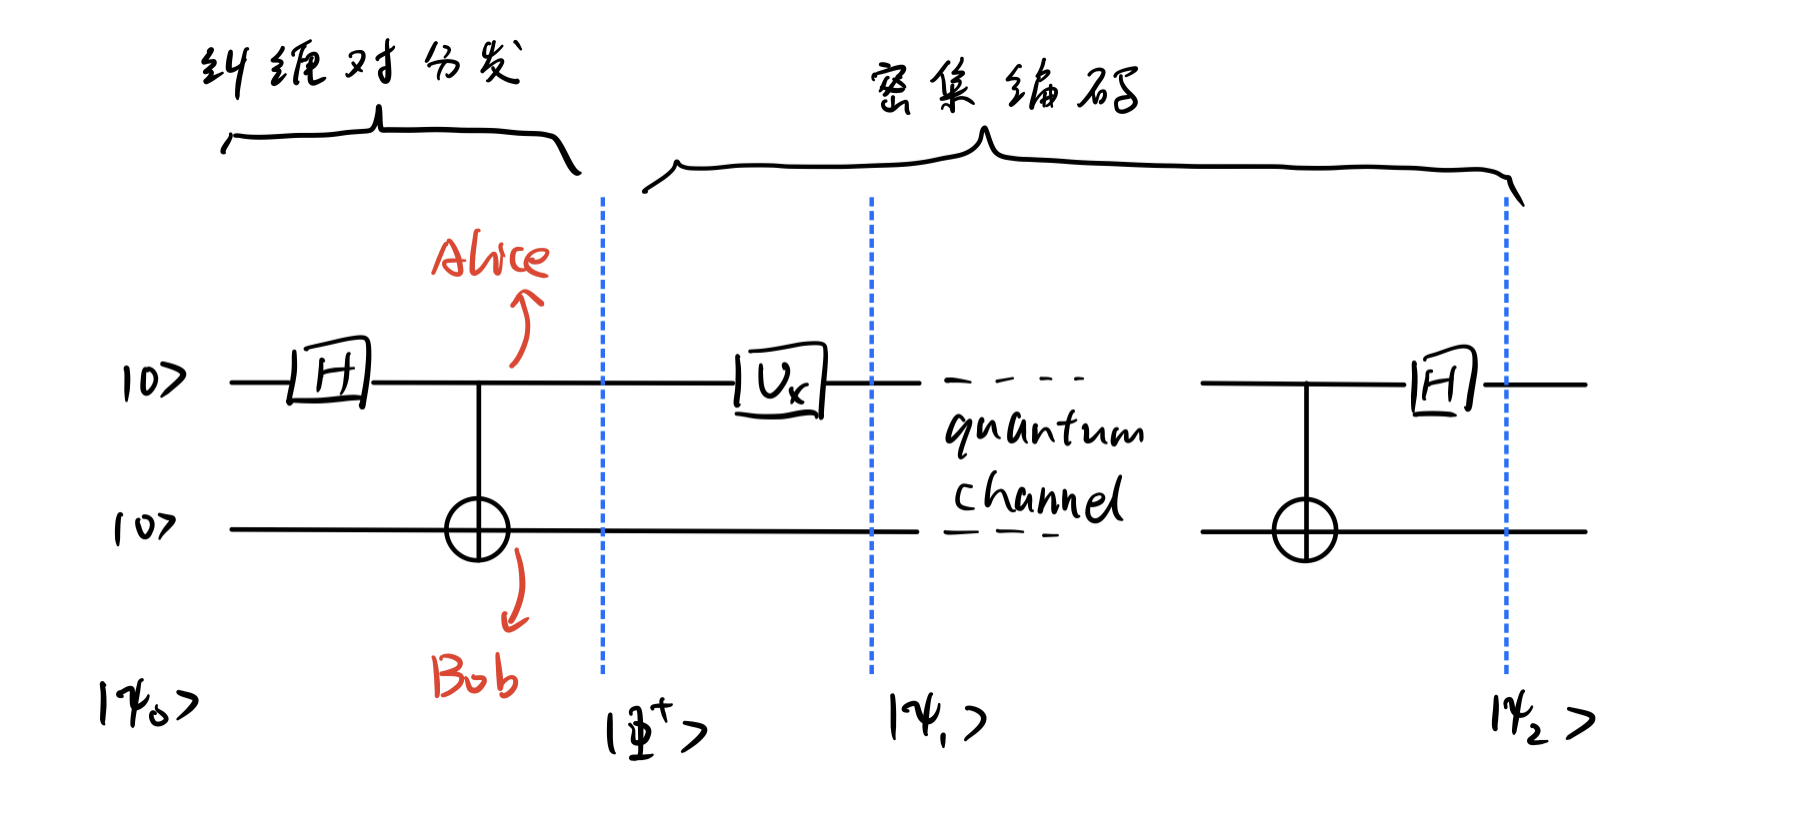 纠缠对分发
密集编码
Alice
|0> H Uₓ H
quantum
channel
|0>
Bob
|ψ₀> |Φ⁺> |ψ₁> |ψ₂>